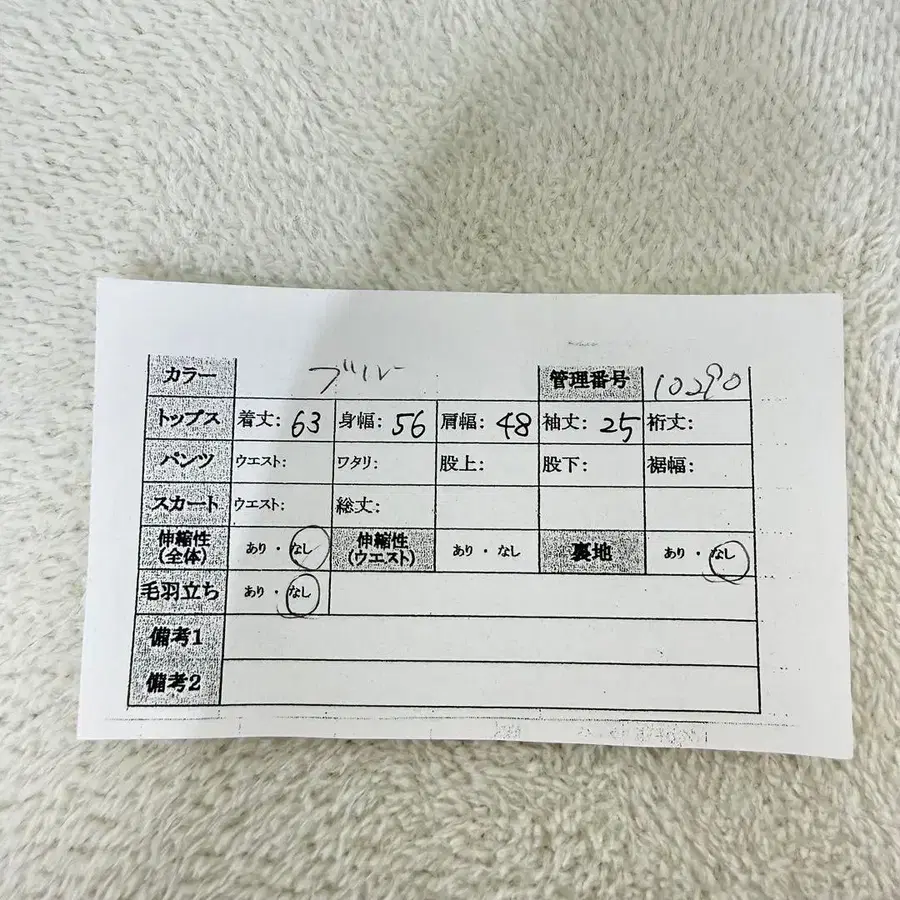 カラー ブルー 管理番号 10290
トップス 着丈: 63 身幅: 56 肩幅: 48 袖丈: 25 裄丈:
パンツ ウエスト: ワタリ: 股上: 股下: 裾幅:
スカート ウエスト: 総丈:
伸縮性(全体) あり・なし 伸縮性(ウエスト) あり・なし 裏地 あり・なし
毛羽立ち あり・なし
備考1
備考2